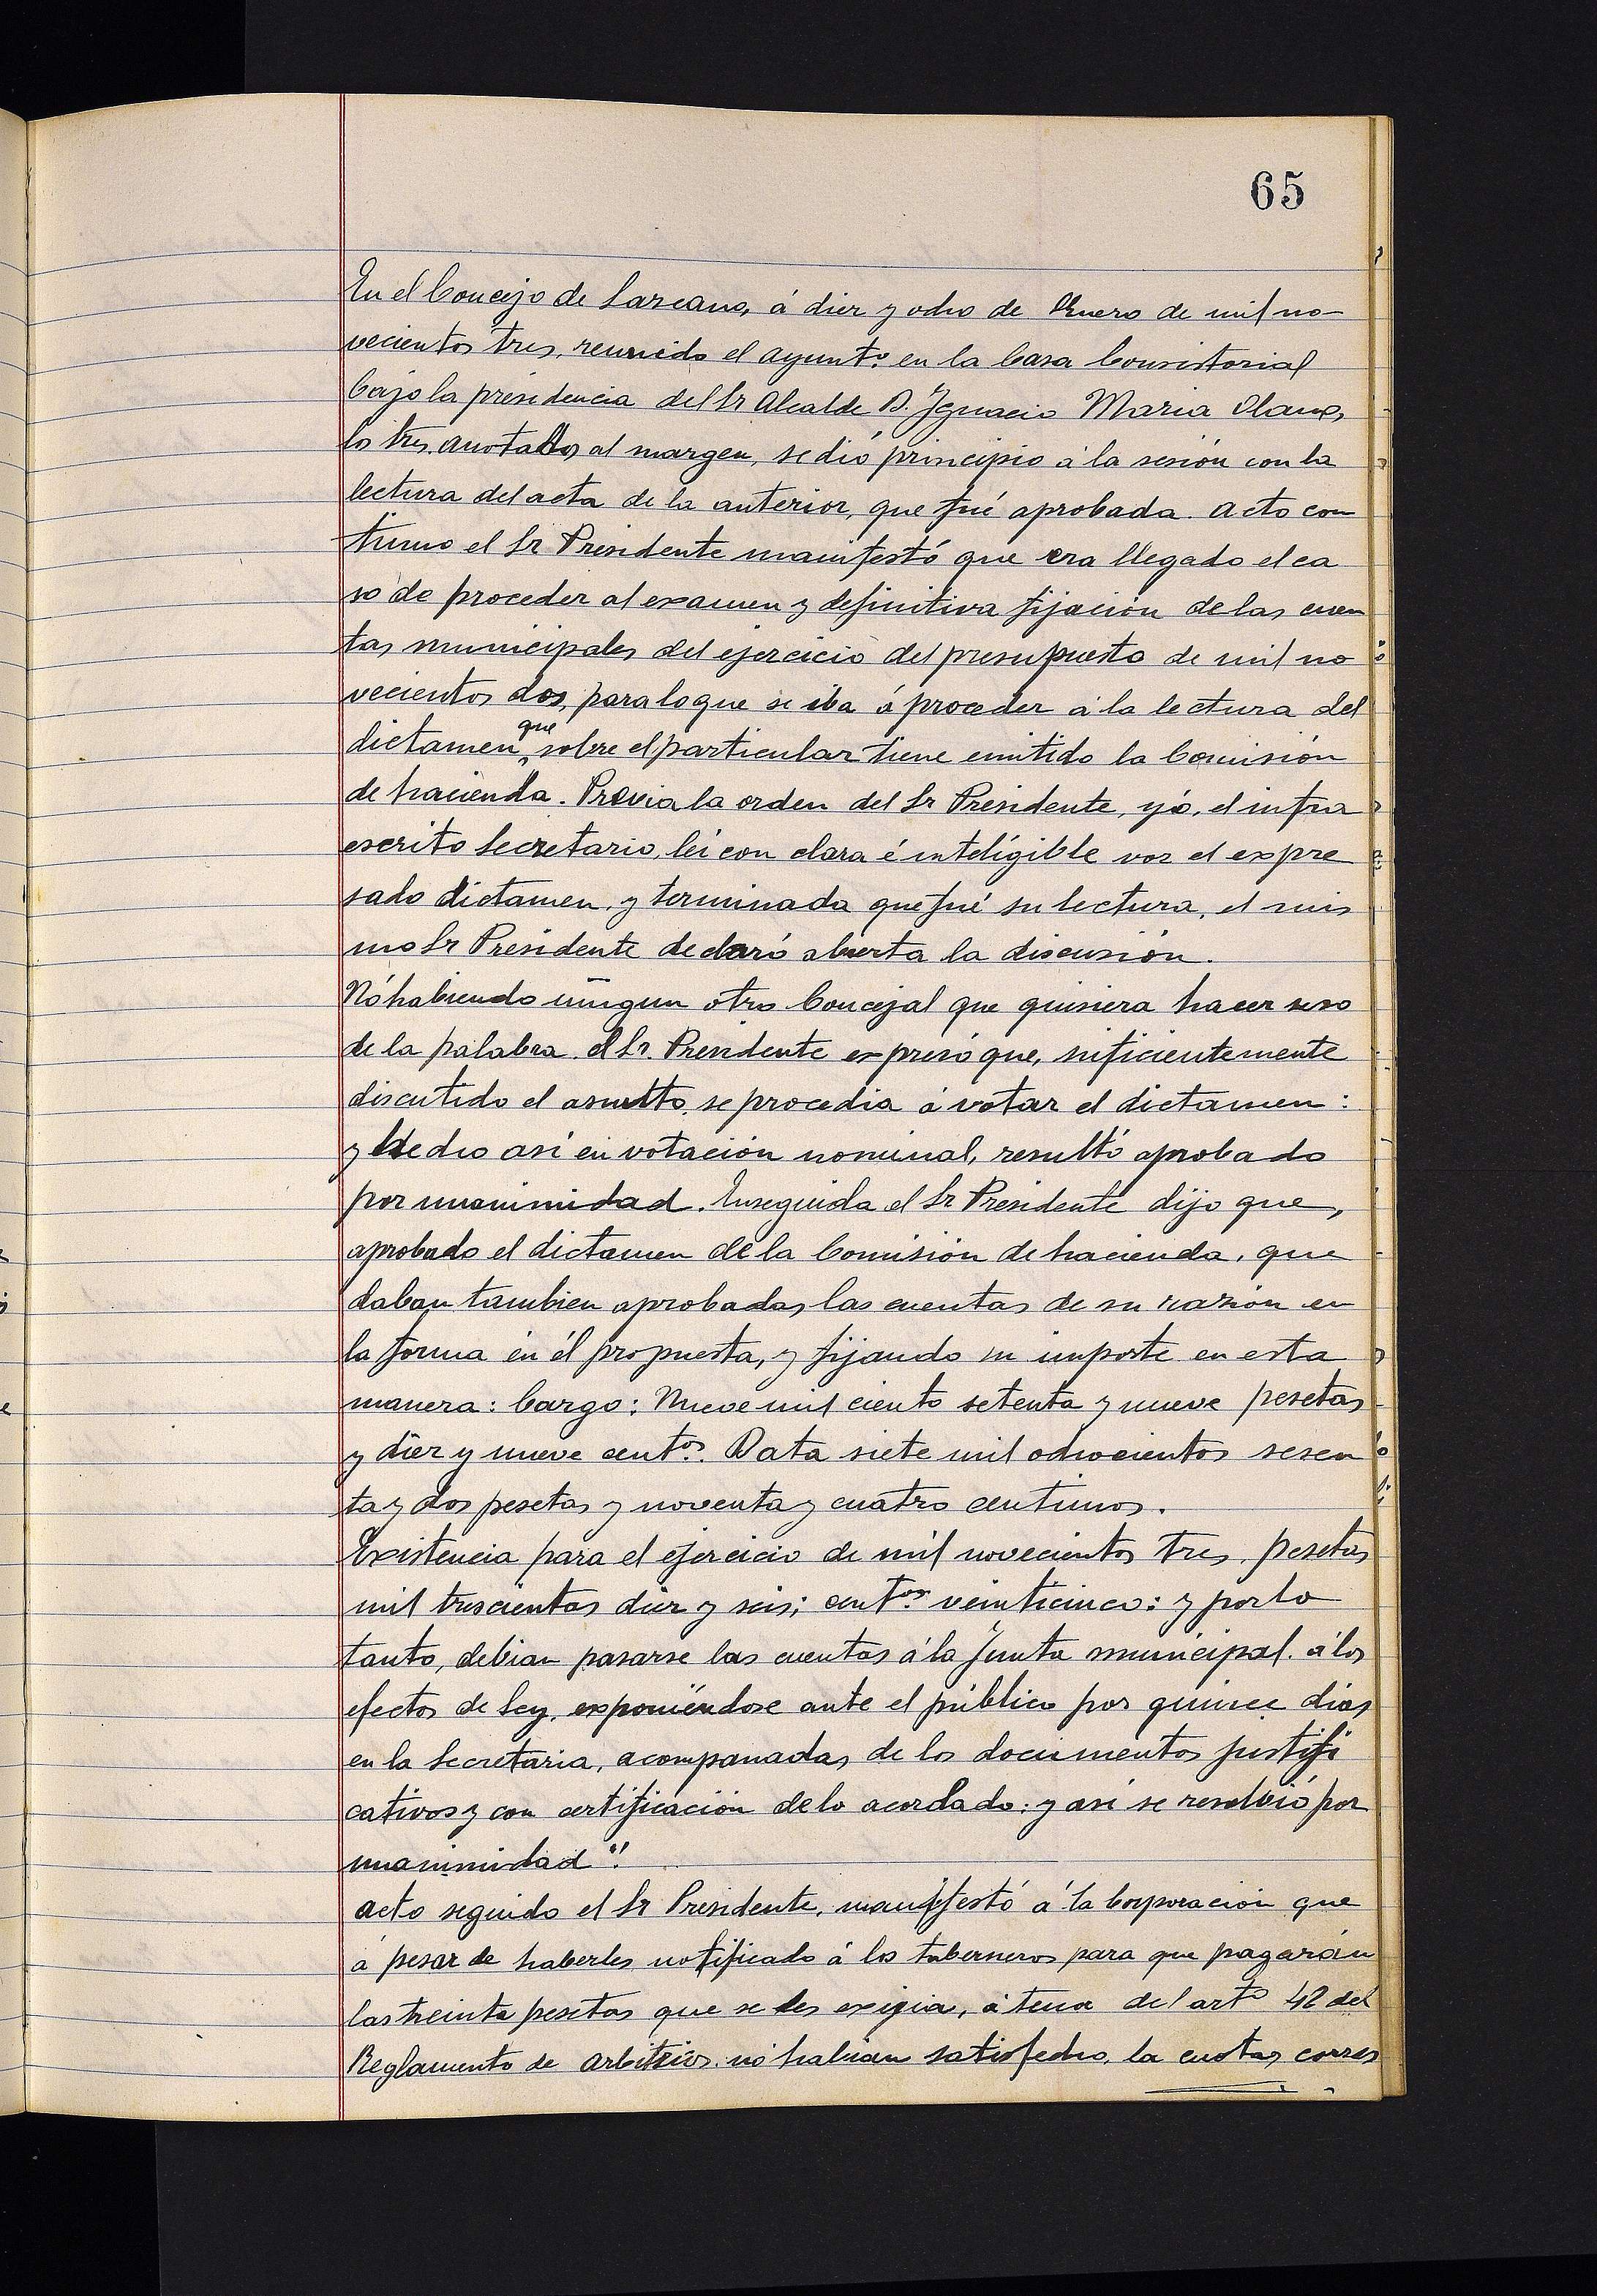 65
En el Concejo de Lazcano, á diez y ocho de Enero de mil no-
vecientos tres, reunido el Ayuntº. en la Casa Consistorial
bajo la presidencia del Sr Alcalde D. Ignacio Maria Olano,
los tres anotados al margen, se dió principio á la sesión con la
lectura del acta de la anterior, que fué aprobada. Acto con
tinuo el Sr Presidente manifestó que era llegado el ca
so de proceder al examen y definitiva fijación de las cuen
tas municipales del ejercicio del presupuesto de mil no
vecientos dos, para lo que se iba á proceder á la lectura del
dictamen que sobre el particular tiene emitido la Comisión
de hacienda. Previa la orden del Sr Presidente, yó, el infra
escrito Secretario, leí con clara é inteligible voz el expre
sado dictamen, y terminada que fué su lectura, el mis
mo Sr Presidente declaró abierta la discusión.
Nó habiendo ningun otro Concejal que quisiera hacer uso
de la palabra el Sr. Presidente expresó que, suficientemente
discutido el asunto, se procedia á votar el dictamen:
y hecho así en votación nominal, resultó aprobado
por unanimidad. Enseguida el Sr Presidente dijo que,
aprobado el dictamen de la Comisión de hacienda, que
daban tambien aprobadas las cuentas de su razón en
la forma en él propuesta, y fijando su importe en esta
manera: Cargo: Nueve mil ciento setenta y nueve pesetas
y diez y nueve centos. Data siete mil ochocientos sesen
ta y dos pesetas y noventa y cuatro centimos.
Existencia para el ejercicio de mil novecientos tres, pesetas
mil trescientas diez y seis; centos. veinticinco: y por lo
tanto, debian pasarse las cuentas á la Junta municipal. á los
efectos de Ley, exponiéndose ante el público por quince dias
en la Secretaria, acompanadas de los documentos justifi
cativos y con certificación de lo acordado: y así se resolvió por
unanimidad".
Acto seguido el Sr Presidente, manifestó á la Corporación que
á pesar de haberles notificado á los taberneros para que pagarán
las treinta pesetas que se les exigia, á tenor del artº 42 del
Reglamento de arbitrios. nó habian satisfecho, la cuotas corres